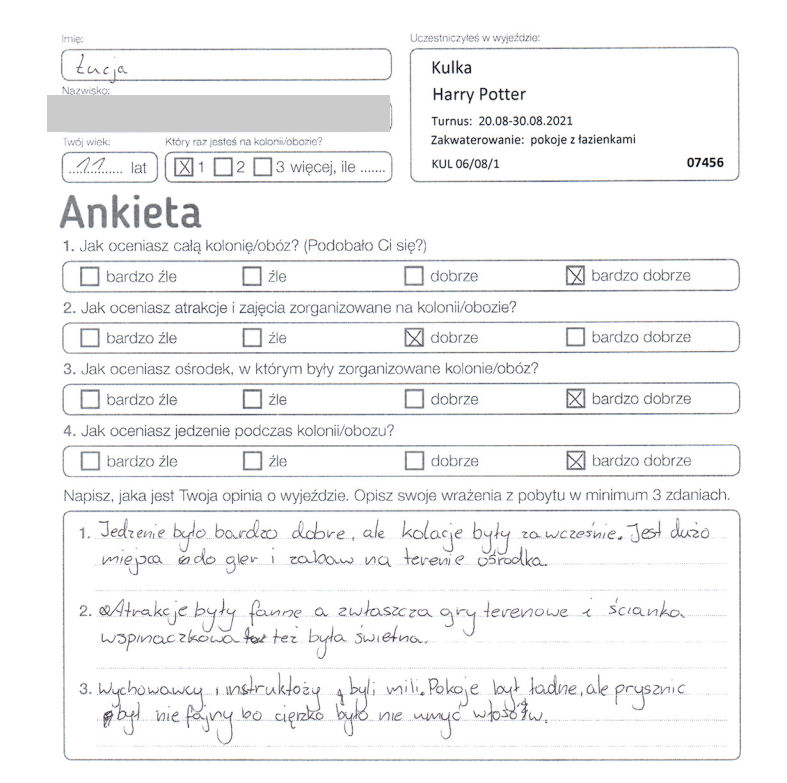 Imię:
Łucja
Nazwisko:
Twój wiek:
11 lat
Który raz jesteś na kolonii/obozie?
1 2 3 więcej, ile .......
Uczestniczyłeś w wyjeździe:
Kulka
Harry Potter
Turnus: 20.08-30.08.2021
Zakwaterowanie: pokoje z łazienkami
KUL 06/08/1 07456
Ankieta
1. Jak oceniasz całą kolonię/obóz? (Podobało Ci się?)
bardzo źle źle dobrze bardzo dobrze
2. Jak oceniasz atrakcje i zajęcia zorganizowane na kolonii/obozie?
bardzo źle źle dobrze bardzo dobrze
3. Jak oceniasz ośrodek, w którym były zorganizowane kolonie/obóz?
bardzo źle źle dobrze bardzo dobrze
4. Jak oceniasz jedzenie podczas kolonii/obozu?
bardzo źle źle dobrze bardzo dobrze
Napisz, jaka jest Twoja opinia o wyjeździe. Opisz swoje wrażenia z pobytu w minimum 3 zdaniach.
1. Jedzenie było bardzo dobre, ale kolacje były za wcześnie. Jest dużo
miejsca do gier i zabaw na terenie ośrodka.
2. Atrakcje były fanne a zwłaszcza gry terenowe i ścianka
wspinaczkowa też była świetna.
3. Wychowawcy i instruktoży byli mili. Pokoje był ładne, ale prysznic
był nie fajny bo cięrzko było nie umyć włosów.